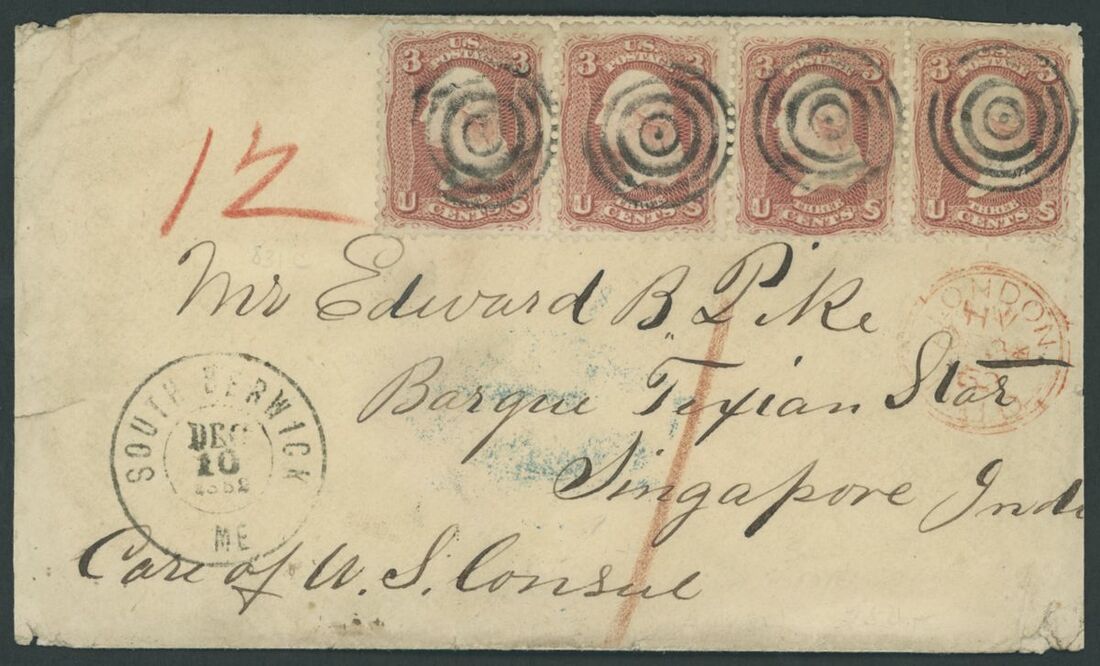 3 U.S. POSTAGE 3 3 U.S. POSTAGE 3 3 POSTAGE 3 3 U.S. POSTAGE 3
U CENTS S U THREE CENTS S U THREE CENTS S U THREE CENTS S
12
Mr Edward B Pike
LONDON
HW
PAID
Barque Texian Star
SOUTH BERWICK
DEC
10
1862
ME
Singapore Indi
Care of U. S. Consul